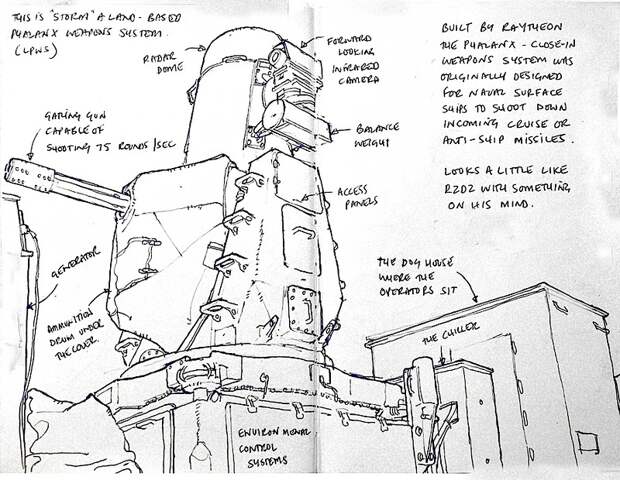 THIS IS "STORM" A LAND-BASED
PHALANX WEAPONS SYSTEM.
(LPWS)
RADAR
DOME
FORWARD
LOOKING
INFRARED
CAMERA
BUILT BY RAYTHEON
THE PHALANX - CLOSE-IN
WEAPONS SYSTEM WAS
ORIGINALLY DESIGNED
FOR NAVAL SURFACE
SHIPS TO SHOOT DOWN
INCOMING CRUISE OR
ANTI-SHIP MISSILES.
LOOKS A LITTLE LIKE
R2D2 WITH SOMETHING
ON HIS MIND.
GATLING GUN
CAPABLE OF
SHOOTING 75 ROUNDS/SEC
BALANCE
WEIGHT
ACCESS
PANELS
GENERATOR
AMMUNITION
DRUM UNDER
THE COVER.
THE DOG HOUSE
WHERE THE
OPERATORS SIT
THE CHILLER
ENVIRONMENAL
CONTROL
SYSTEMS